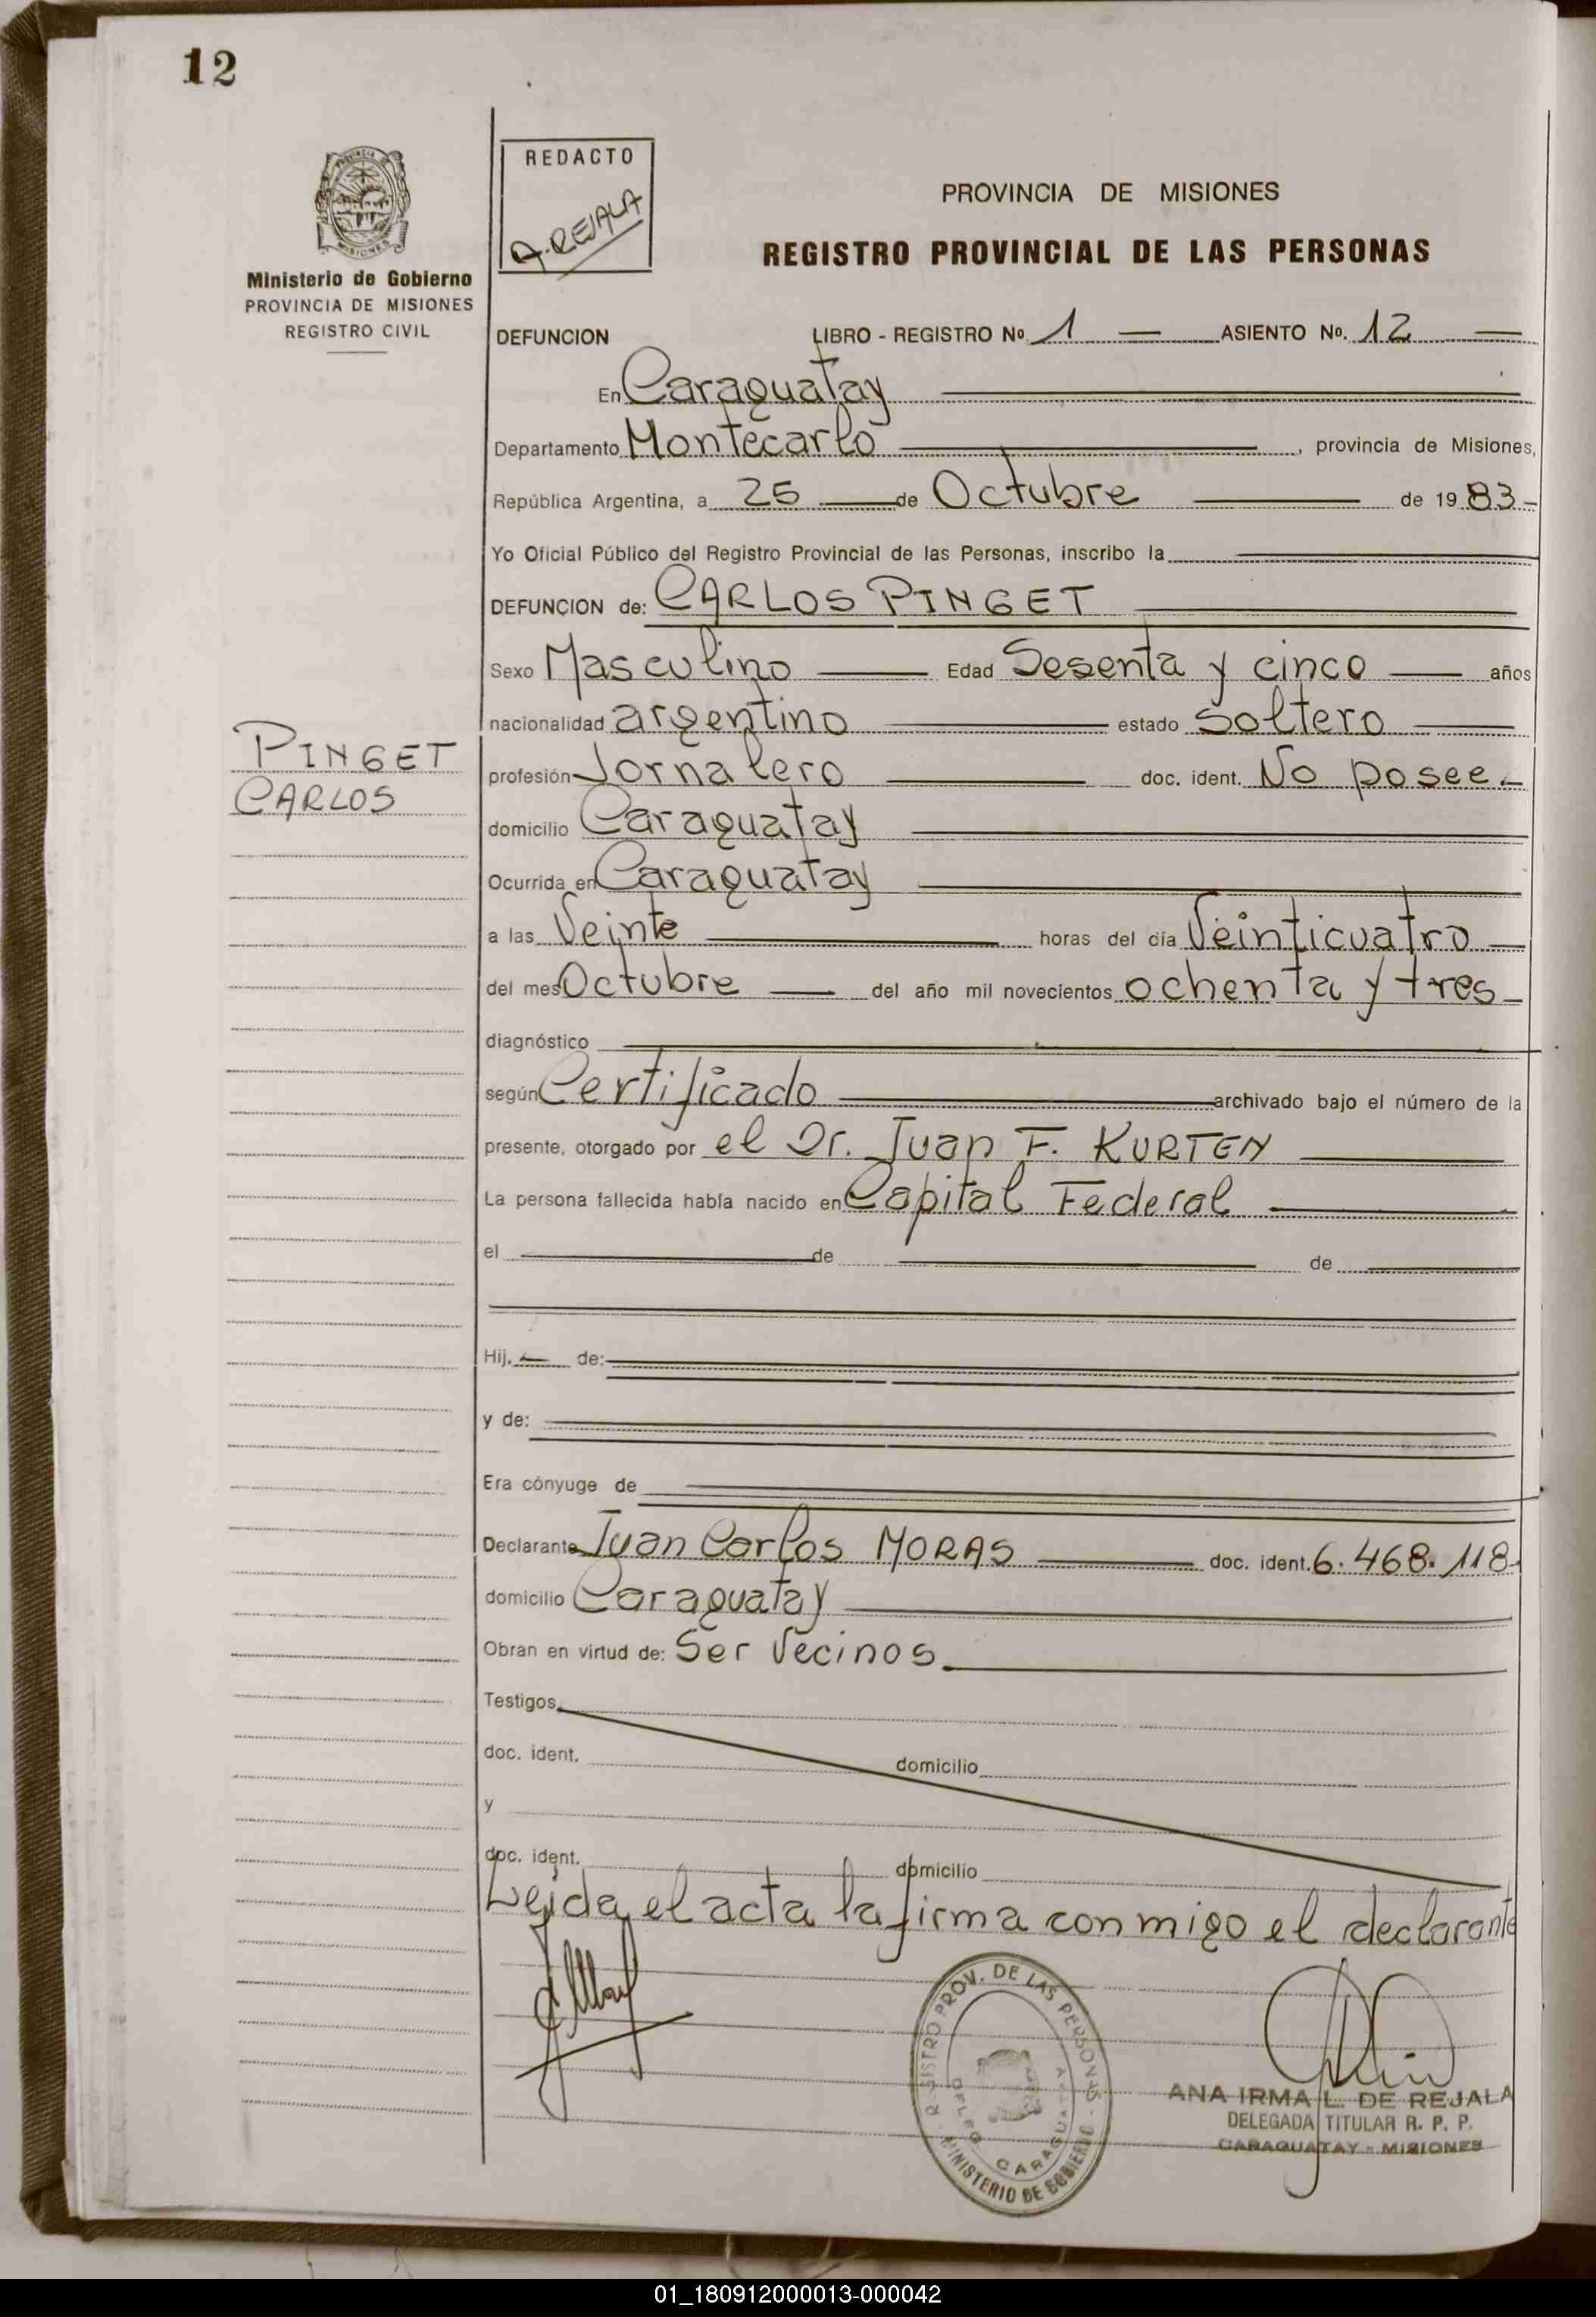 12
PROVINCIA DE
MISIONES
Ministerio de Gobierno
PROVINCIA DE MISIONES
REGISTRO CIVIL
REDACTO
A. REJALA
PROVINCIA DE MISIONES
REGISTRO PROVINCIAL DE LAS PERSONAS
DEFUNCION LIBRO - REGISTRO Nº 1 ASIENTO Nº. 12
En Caraguatay
Departamento Montecarlo, provincia de Misiones,
República Argentina, a 25 de Octubre de 1983
Yo Oficial Público del Registro Provincial de las Personas, inscribo la
DEFUNCION de: CARLOS PINGET
Sexo Masculino Edad Sesenta y cinco años
nacionalidad argentino estado Soltero
PINGET
CARLOS
profesión Jornalero doc. ident. No posee.
domicilio Caraguatay
Ocurrida en Caraguatay
a las Veinte horas del día Veinticuatro
del mes Octubre del año mil novecientos ochenta y tres
diagnóstico
según Certificado archivado bajo el número de la
presente, otorgado por el Dr. Juan F. KURTEN
La persona fallecida había nacido en Capital Federal
el de de
Hij. de:
y de:
Era cónyuge de
Declarante Juan Carlos MORAS doc. ident. 6.468.118
domicilio Caraguatay
Obran en virtud de: Ser Vecinos
Testigos
doc. ident. domicilio
y
doc. ident. domicilio
Leida el acta la firma conmigo el declarante
R. SISTRO PROV. DE LAS PERSONAS
DELEG. CARAGUATAY
MINISTERIO DE GOBIERNO
ANA IRMA L. DE REJALA
DELEGADA TITULAR R. P. P.
CARAGUATAY - MISIONES
01_180912000013-000042